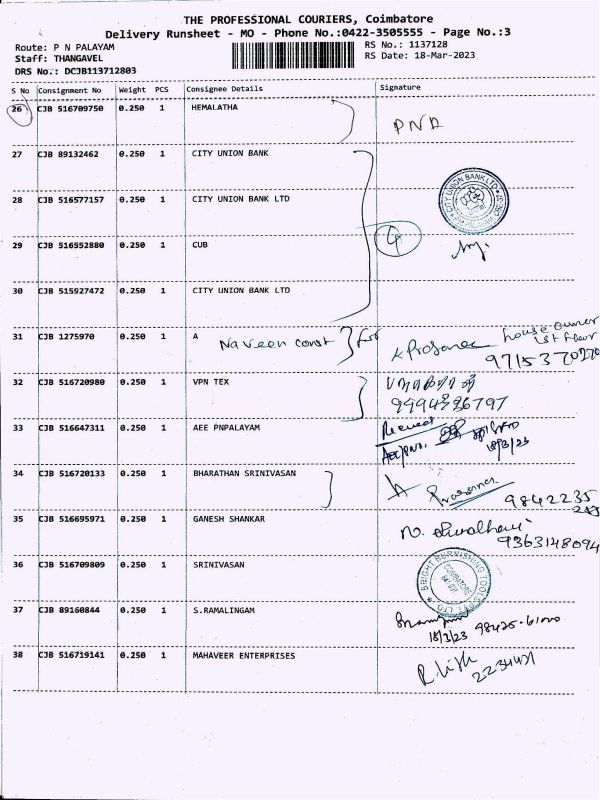 THE PROFESSIONAL COURIERS, Coimbatore
Delivery Runsheet - MO - Phone No.:0422-3505555 - Page No.:3
Route: P N PALAYAM
RS No.: 1137128
Staff: THANGAVEL
RS Date: 18-Mar-2023
DRS No.: DCJB113712803
S No Consignment No Weight PCS Consignee Details Signature
26 CJB 516709750 0.250 1 HEMALATHA
PND
27 CJB 89132462 0.250 1 CITY UNION BANK
CITY UNION BANK LTD
28 CJB 516577157 0.250 1 CITY UNION BANK LTD
29 CJB 516552880 0.250 1 CUB
4
30 CJB 515927472 0.250 1 CITY UNION BANK LTD
31 CJB 1275970 0.250 1 A
Naveen const for
K Prasanna house owner
1st floor
32 CJB 516720980 0.250 1 VPN TEX
33 CJB 516647311 0.250 1 AEE PNPALAYAM
Received
18/3/23
34 CJB 516720133 0.250 1 BHARATHAN SRINIVASAN
Prasanna 9842235
35 CJB 516695971 0.250 1 GANESH SHANKAR
9363148094
36 CJB 516709809 0.250 1 SRINIVASAN
BRIGHT BURNISHING TOOLS PVT LTD
COIMBATORE
37 CJB 89160844 0.250 1 S.RAMALINGAM
18/3/23
38 CJB 516719141 0.250 1 MAHAVEER ENTERPRISES